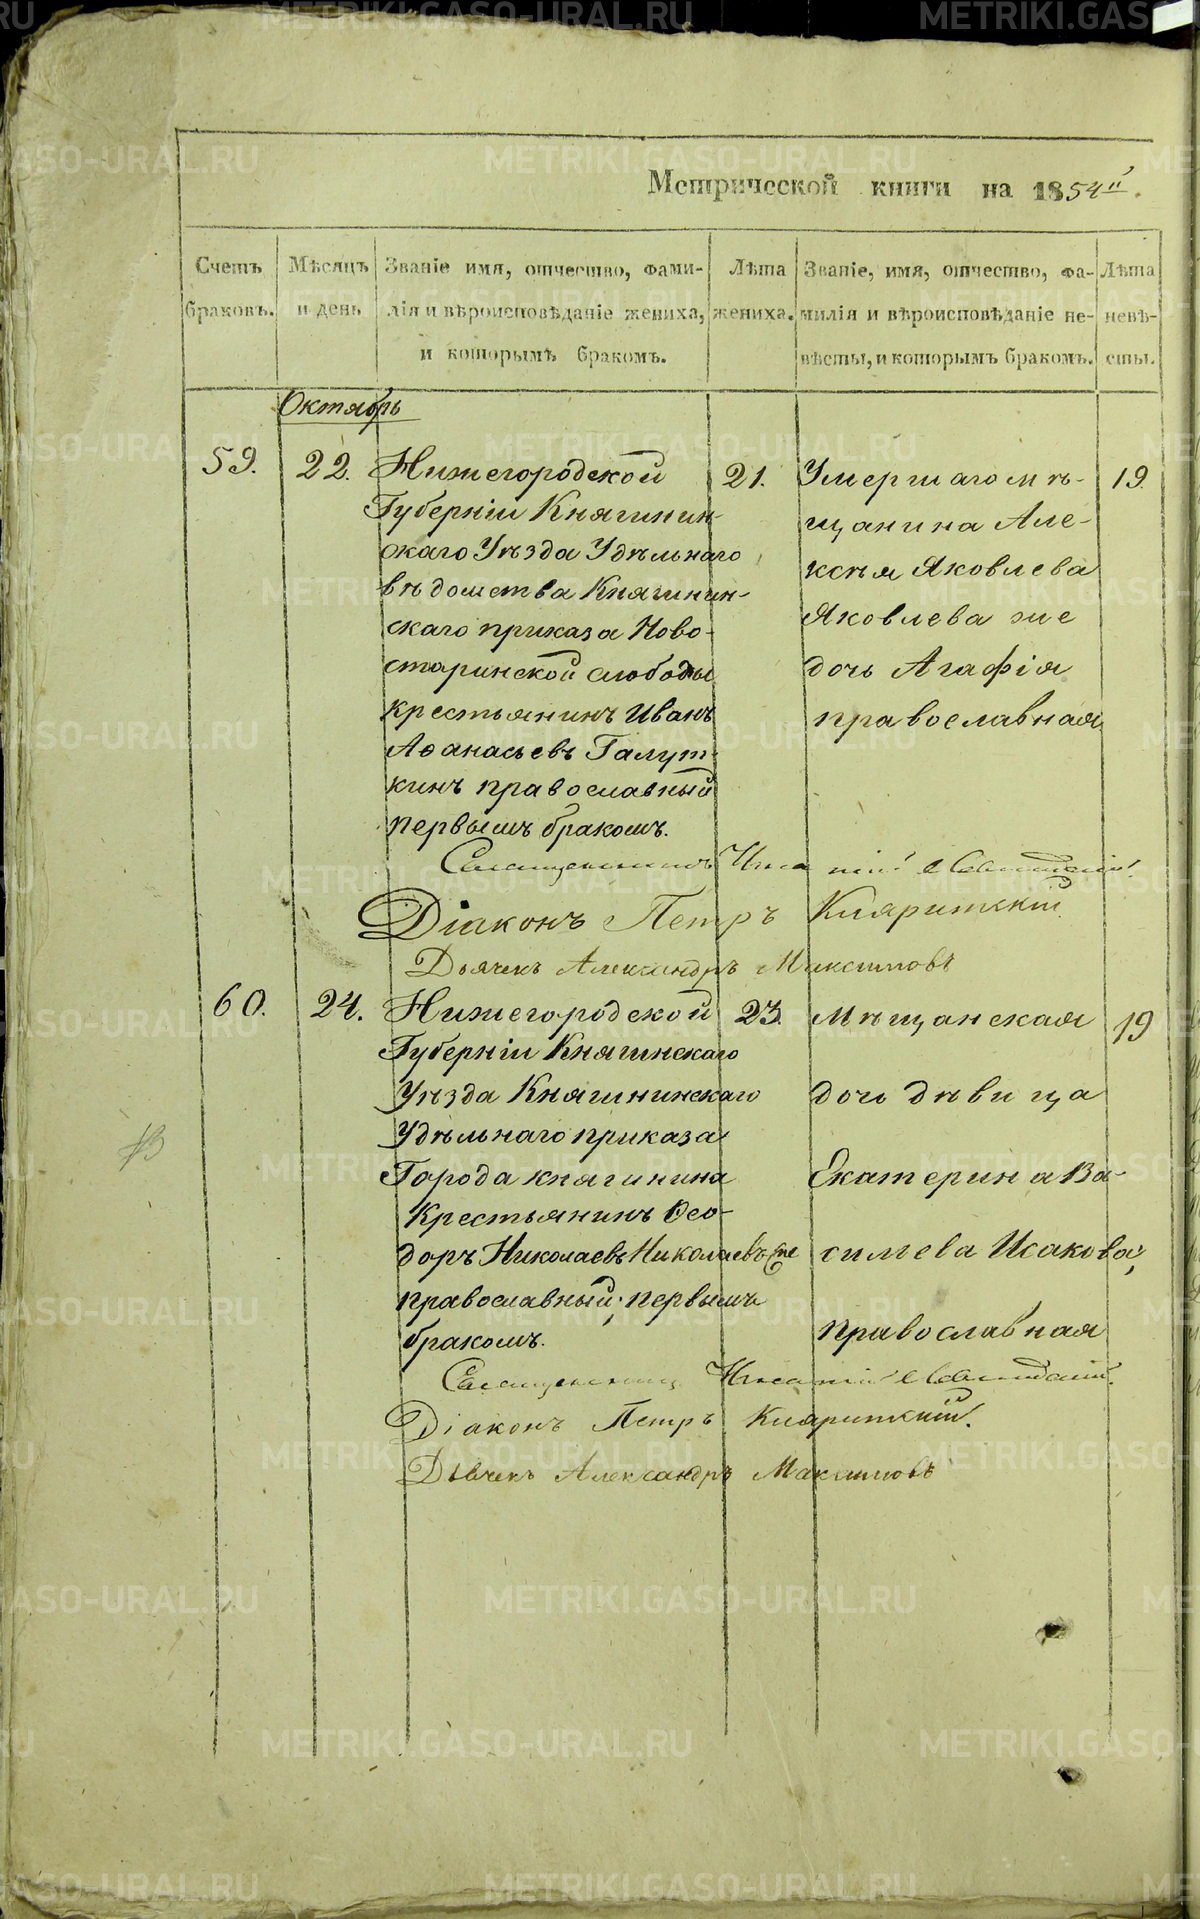 Метрической книги на 1854й.
Счетъ браковъ.
Мѣсяцъ и день
Званіе имя, отчество, фами-
лія и вѣроисповѣданіе жениха,
и которымъ бракомъ.
Лѣта
жениха.
Званіе, имя, отчество, фа-
милія и вѣроисповѣданіе не-
вѣсты, и которымъ бракомъ.
Лѣта
невѣ-
сты.
Октябрь
59.
22.
Нижегородской
Губерніи Княгинин-
скаго Уѣзда Удѣльнаго
вѣдомства Княгинин-
скаго приказа Ново-
старинской слободы
крестьянинъ Иванъ
Аѳанасьевъ Галут-
кинъ православный
первымъ бракомъ.
21.
Умершаго мѣ-
щанина Але-
ксѣя Яковлева
Яковлева же
дочь Агафія
православная
19.
Священникъ
Діаконъ Петръ
Дьячекъ Александръ Максимовъ
60.
24.
Нижегородской
Губерніи Княгинскаго
Уѣзда Княгининскаго
Удѣльнаго приказа
Города княгинина
Крестьянинъ Ѳео-
доръ Николаевъ Николаевъ же
православный; первымъ
бракомъ.
23.
Мѣщанская
дочь дѣвица
Екатерина Ва-
сильева Исакова,
православная
19
Священникъ
Діаконъ Петръ
Дьячекъ Александръ Максимовъ
METRIKI.GASO-URAL.RU